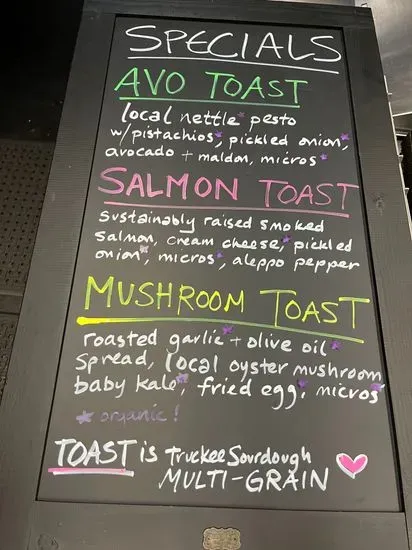 SPECIALS
AVO TOAST
local nettle* pesto
w/pistachios*, pickled onion*,
avocado + maldon, micros*
SALMON TOAST
sustainably raised smoked
salmon, cream cheese*, pickled
onion*, micros*, aleppo pepper
MUSHROOM TOAST
roasted garlic* + olive oil*
spread, local oyster mushroom
baby kale*, fried egg*, micros*
* organic!
TOAST is Truckee Sourdough
MULTI-GRAIN